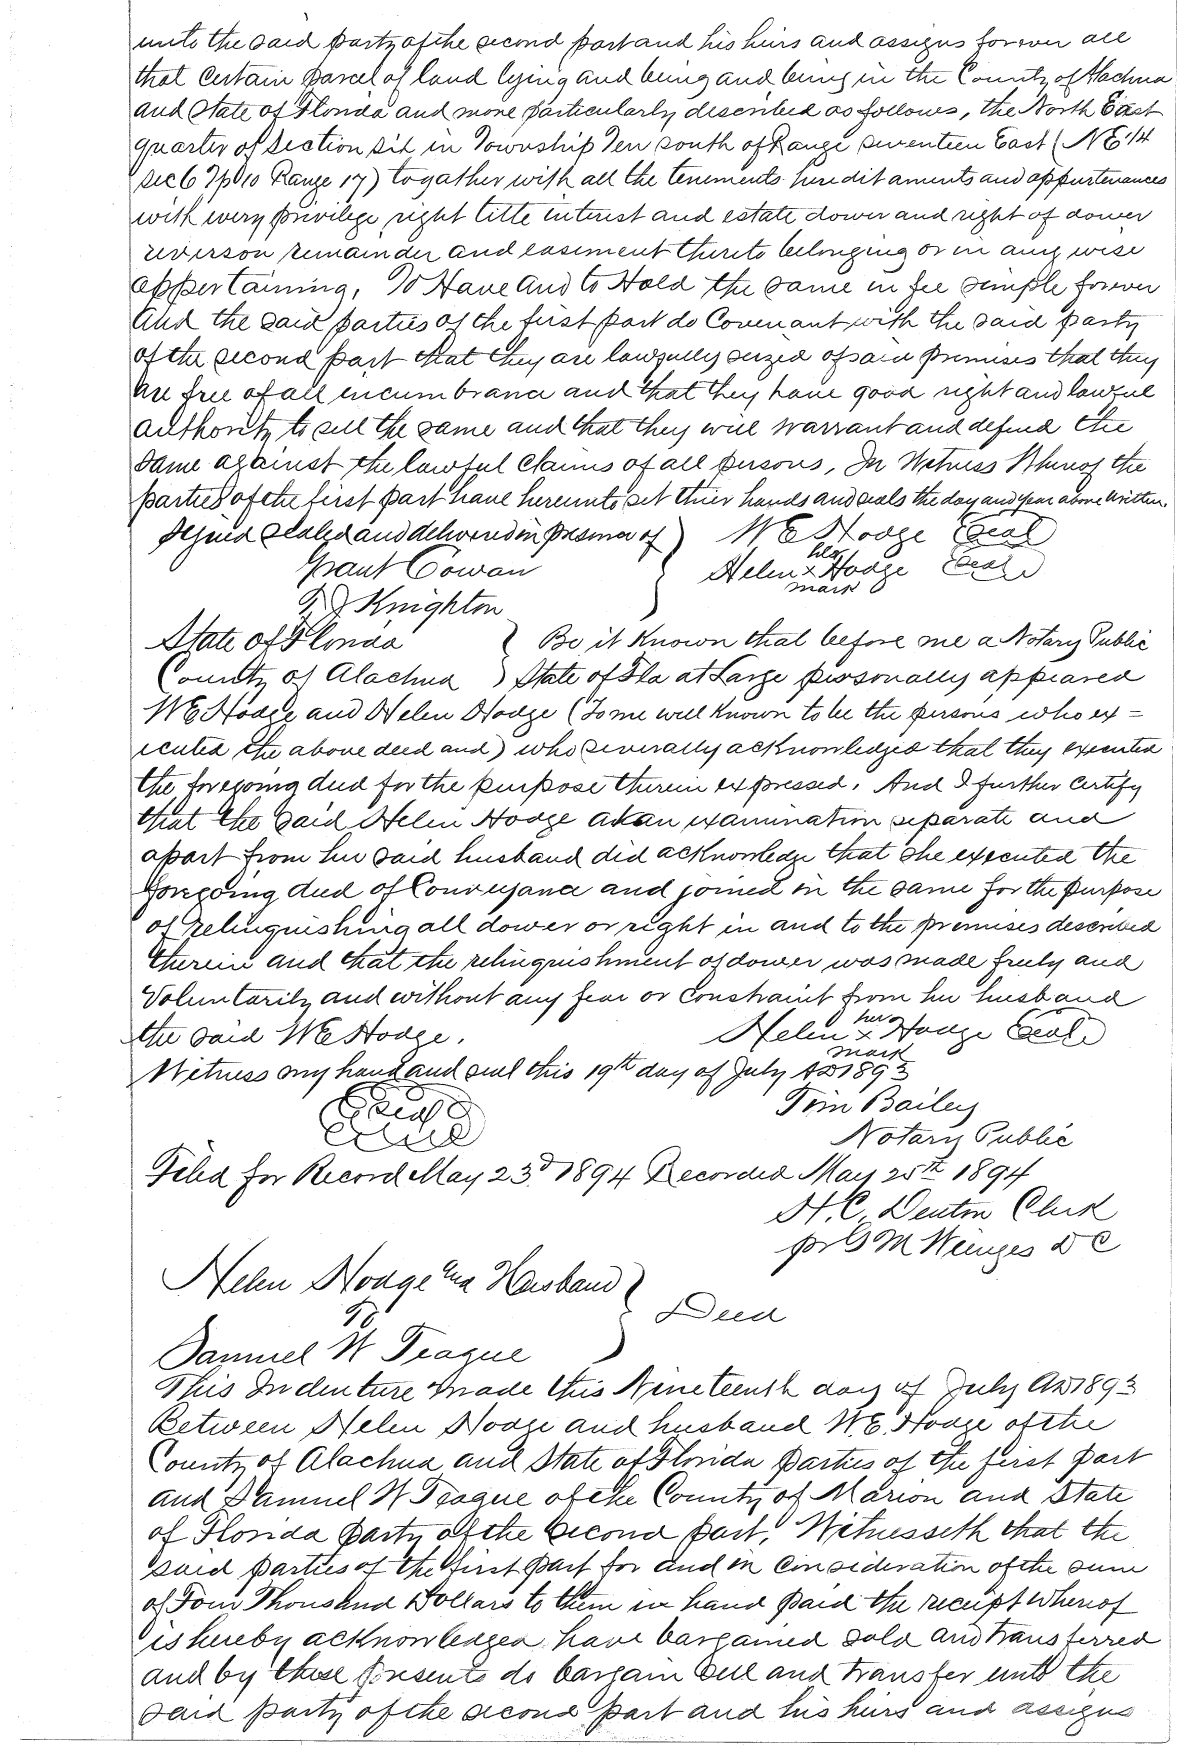 unto the said party of the second part and his heirs and assigns forever all
that certain parcel of land lying and being and being in the County of Alachua
and State of Florida and more particularly described as follows, the North East
quarter of Section six in Township Ten south of Range seventeen East (NE 1/4
Sec 6 Tp 10 Range 17) together with all the tenements hereditaments and appurtenances
with every privilege right title interest and estate dower and right of dower
reverson remainder and easement thereto belonging or in any wise
appertaining, To Have and to Hold the same in fee simple forever
And the said parties of the first part do Covenant with the said party
of the second part that they are lawfully seized of said premises that they
are free of all incumbrance and that they have good right and lawful
authority to sell the same and that they will warrant and defend the
same against the lawful claims of all persons, In Witness Whereof the
parties of the first part have hereunto set thier hands and seals the day and year above written.
Signed sealed and delivered in presence of ) W E Hodge Seal
Grant Cowan Helen her x mark Hodge Seal
T J Knighton
State of Florida Be it Known that before me a Notary Public
County of Alachua ) State of Fla at Large personally appeared
W E Hodge and Helen Hodge (To me well known to be the persons who ex=
ecuted the above deed and) who severally acknowledged that they executed
the foregoing deed for the purpose therein expressed. And I further certify
that the said Helen Hodge at an examination separate and
apart from her said husband did acknowledge that she executed the
foregoing deed of Conveyance and joined in the same for the purpose
of relinquishing all dower or right in and to the premises described
therein and that the relinquishment of dower was made freely and
Voluntarily and without any fear or constraint from her husband
the said W E Hodge. Helen her x mark Hodge Seal
Witness my hand and seal this 19th day of July AD 1893
Seal Tim Bailey
Notary Public
Filed for Record May 23d 1894 Recorded May 25th 1894
H. C. Denton Clerk
pr G M Weinges D C
Helen Hodge and Husband
To Deed
Samuel W Teague
This Indenture made this Nineteenth day of July AD 1893
Between Helen Hodge and husband W. E. Hodge of the
County of Alachua and State of Florida parties of the first part
and Samuel W Teague of the County of Marion and State
of Florida party of the second part, Witnesseth that the
said parties of the first part for and in consideration of the sum
of Four Thousand Dollars to them in hand paid the receipt whereof
is hereby acknowledged have bargained sold and transferred
and by these presents do bargain sell and transfer unto the
said party of the second part and his heirs and assigns